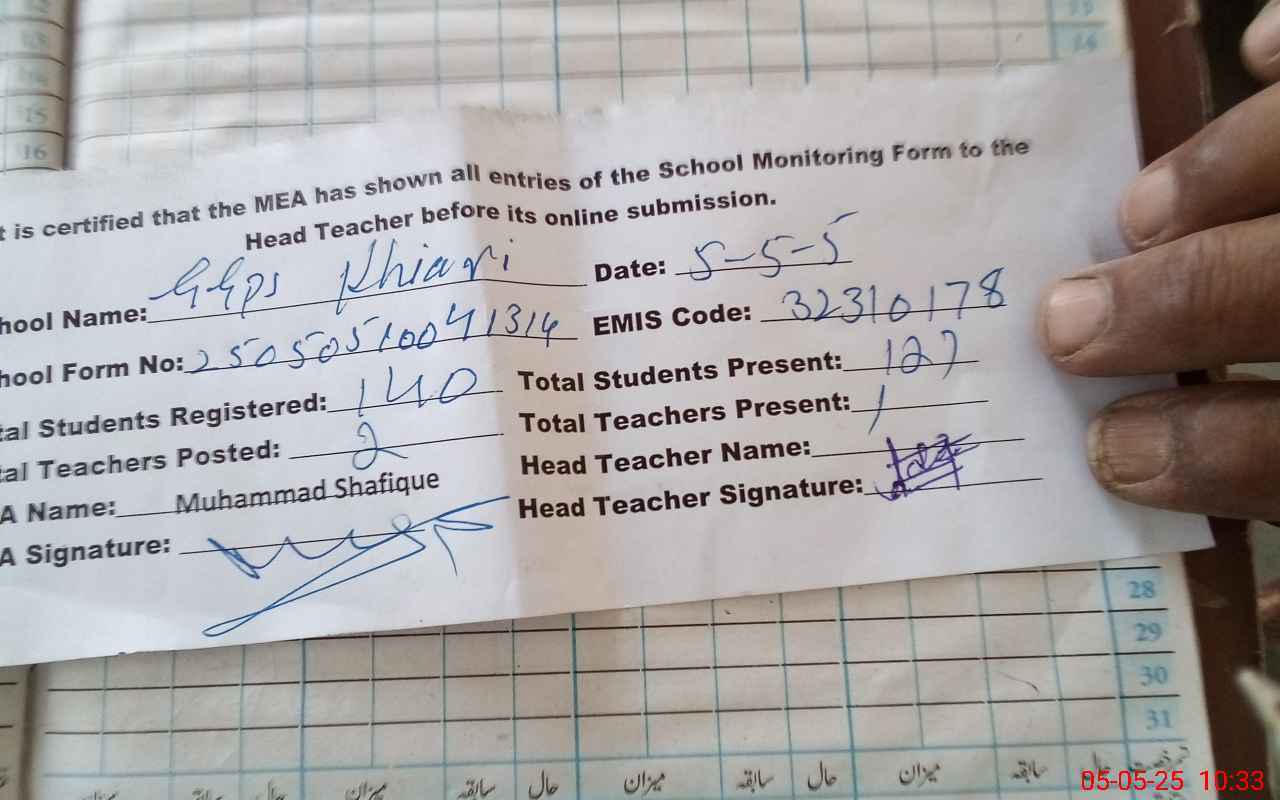 t is certified that the MEA has shown all entries of the School Monitoring Form to the
Head Teacher before its online submission.
hool Name: GGPS Khiari Date: 5-5-5
hool Form No: 25050510041314 EMIS Code: 32310178
tal Students Registered: 140 Total Students Present: 127
tal Teachers Posted: 2 Total Teachers Present: 1
A Name: Muhammad Shafique Head Teacher Name:
A Signature: Head Teacher Signature:
15
16
28
29
30
31
میزان سابقہ حال میزان سابقہ حال میزان سابقہ حال
05-05-25 10:33